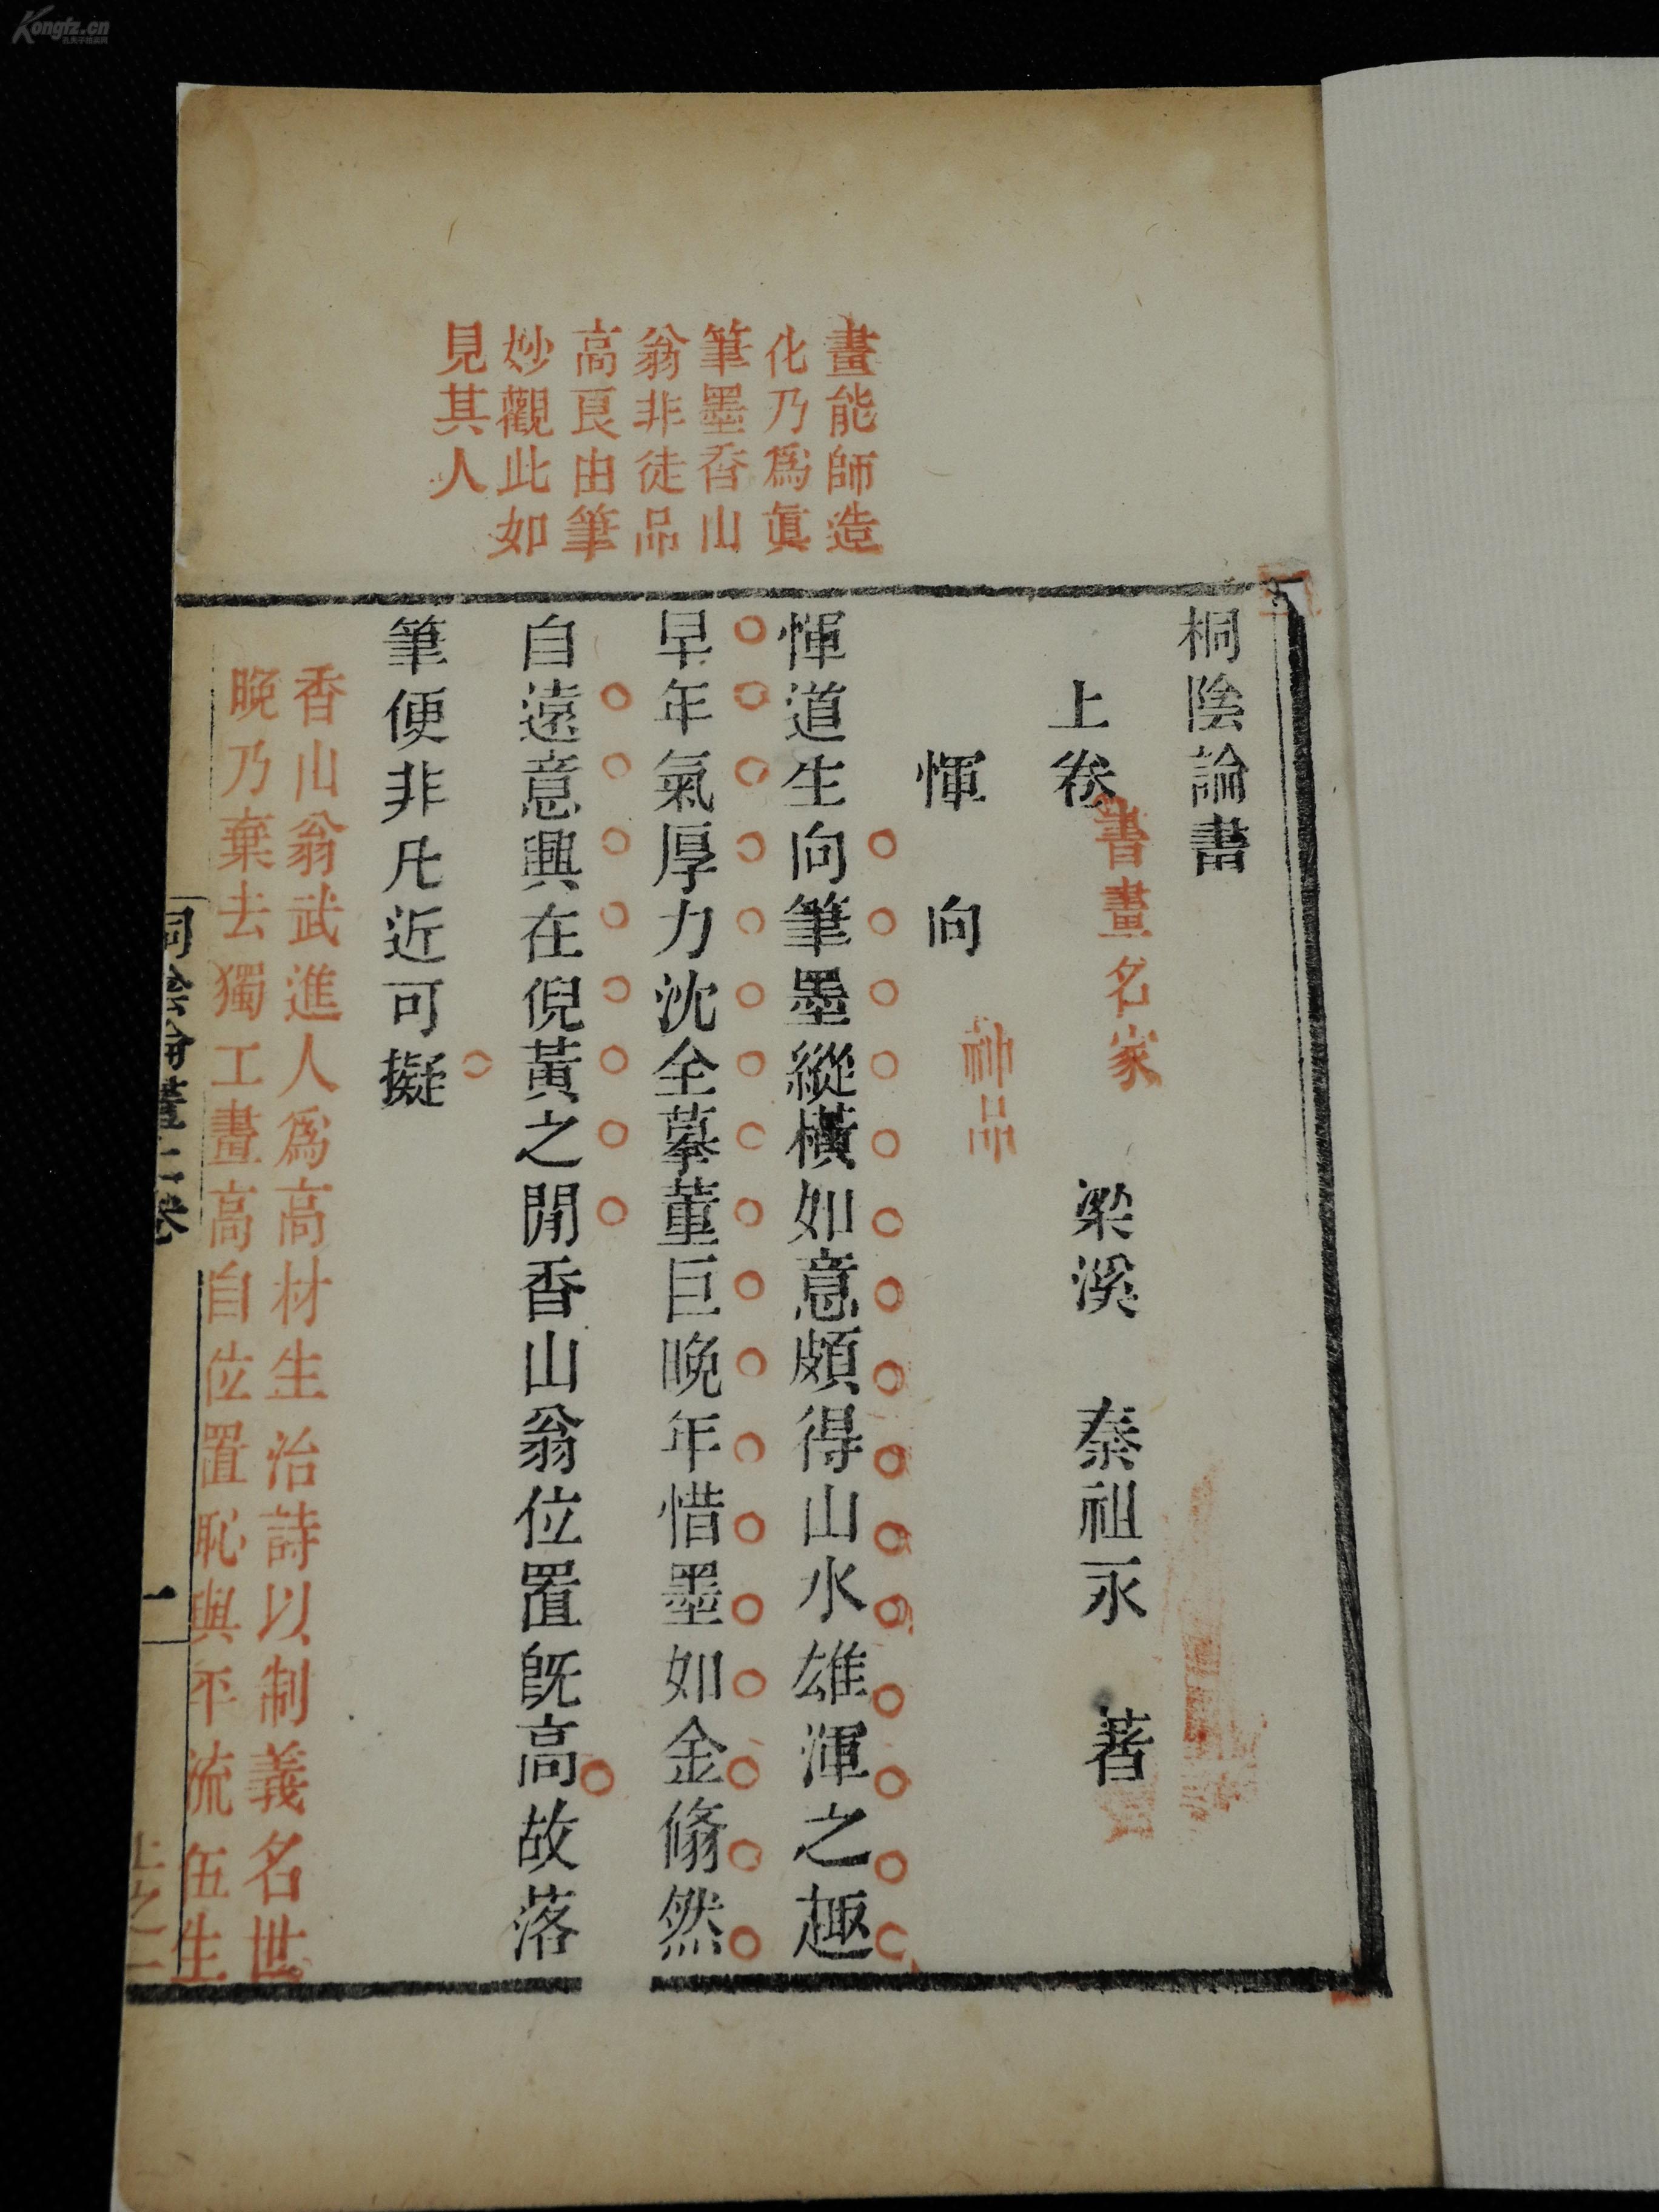 Kongfz.cn
畫能師造
化乃爲眞
筆墨香山
翁非徒品
高良由筆
妙觀此如
見其人
桐陰論畫
上卷 書畫名家 梁溪 秦祖永 著
惲 向 神品
惲道生向筆墨縱橫如意頗得山水雄渾之趣
早年氣厚力沈全摹董巨晚年惜墨如金翛然
自遠意興在倪黃之閒香山翁位置旣高故落
筆便非凡近可擬
香山翁武進人爲高材生治詩以制義名世
晚乃棄去獨工畫高自位置恥與平流伍生
桐陰論畫上卷 一
上之一